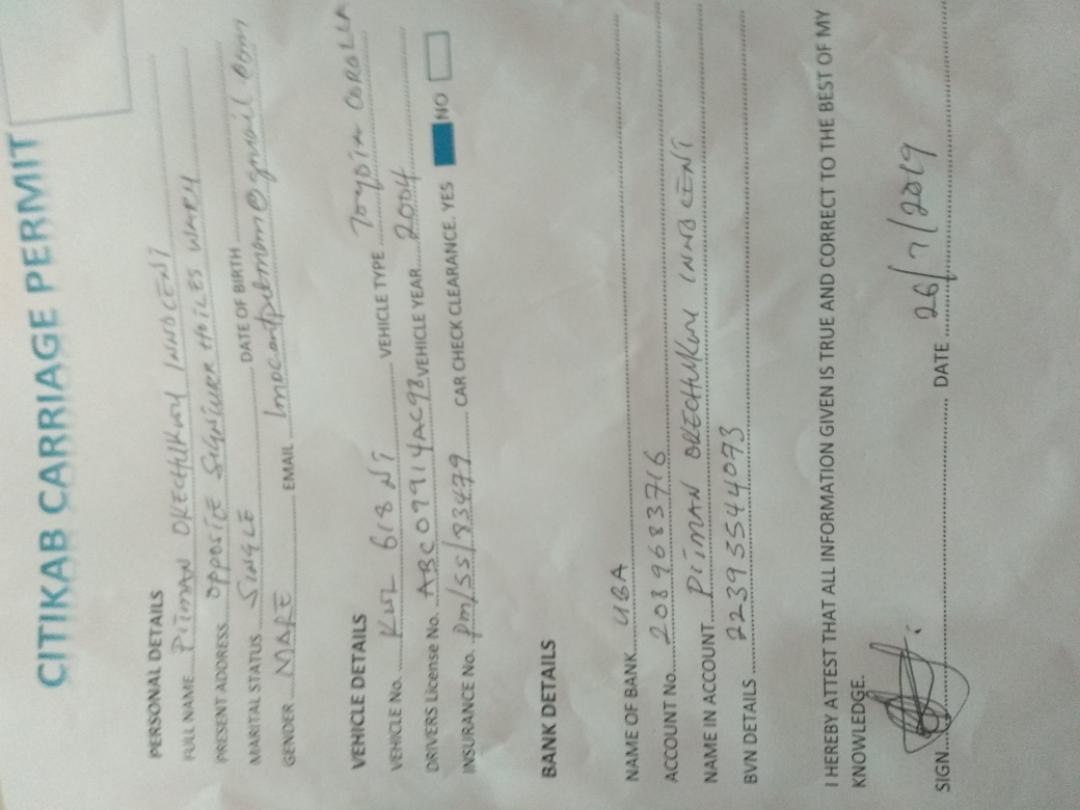 CITIKAB CARRIAGE PERMIT
PERSONAL DETAILS
FULL NAME PiiMAN ORECHUKWU INNOCENT
PRESENT ADDRESS OPPOSITE HOTLES WARRI
MARITAL STATUS SINGLE DATE OF BIRTH
GENDER MALE EMAIL
VEHICLE DETAILS
VEHICLE No. KWL 618 NT VEHICLE TYPE Toyota COROLLA
DRIVERS License No. ABC09914AC98 VEHICLE YEAR 2004
INSURANCE No. pm/ss/83479 CAR CHECK CLEARANCE. YES NO
BANK DETAILS
NAME OF BANK UBA
ACCOUNT No. 2089683716
NAME IN ACCOUNT PiiMAN ORECHUKWU INNOCENT
BVN DETAILS 22393544073
I HEREBY ATTEST THAT ALL INFORMATION GIVEN IS TRUE AND CORRECT TO THE BEST OF MY
KNOWLEDGE.
SIGN DATE 26/7/2019